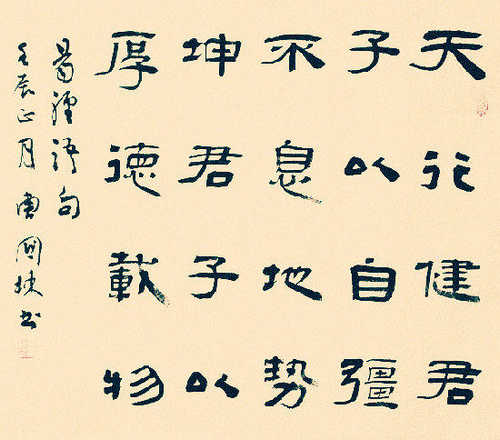 天行健君
子以自彊
不息地勢
坤君子以
厚德載物
易經語句
壬辰正月書